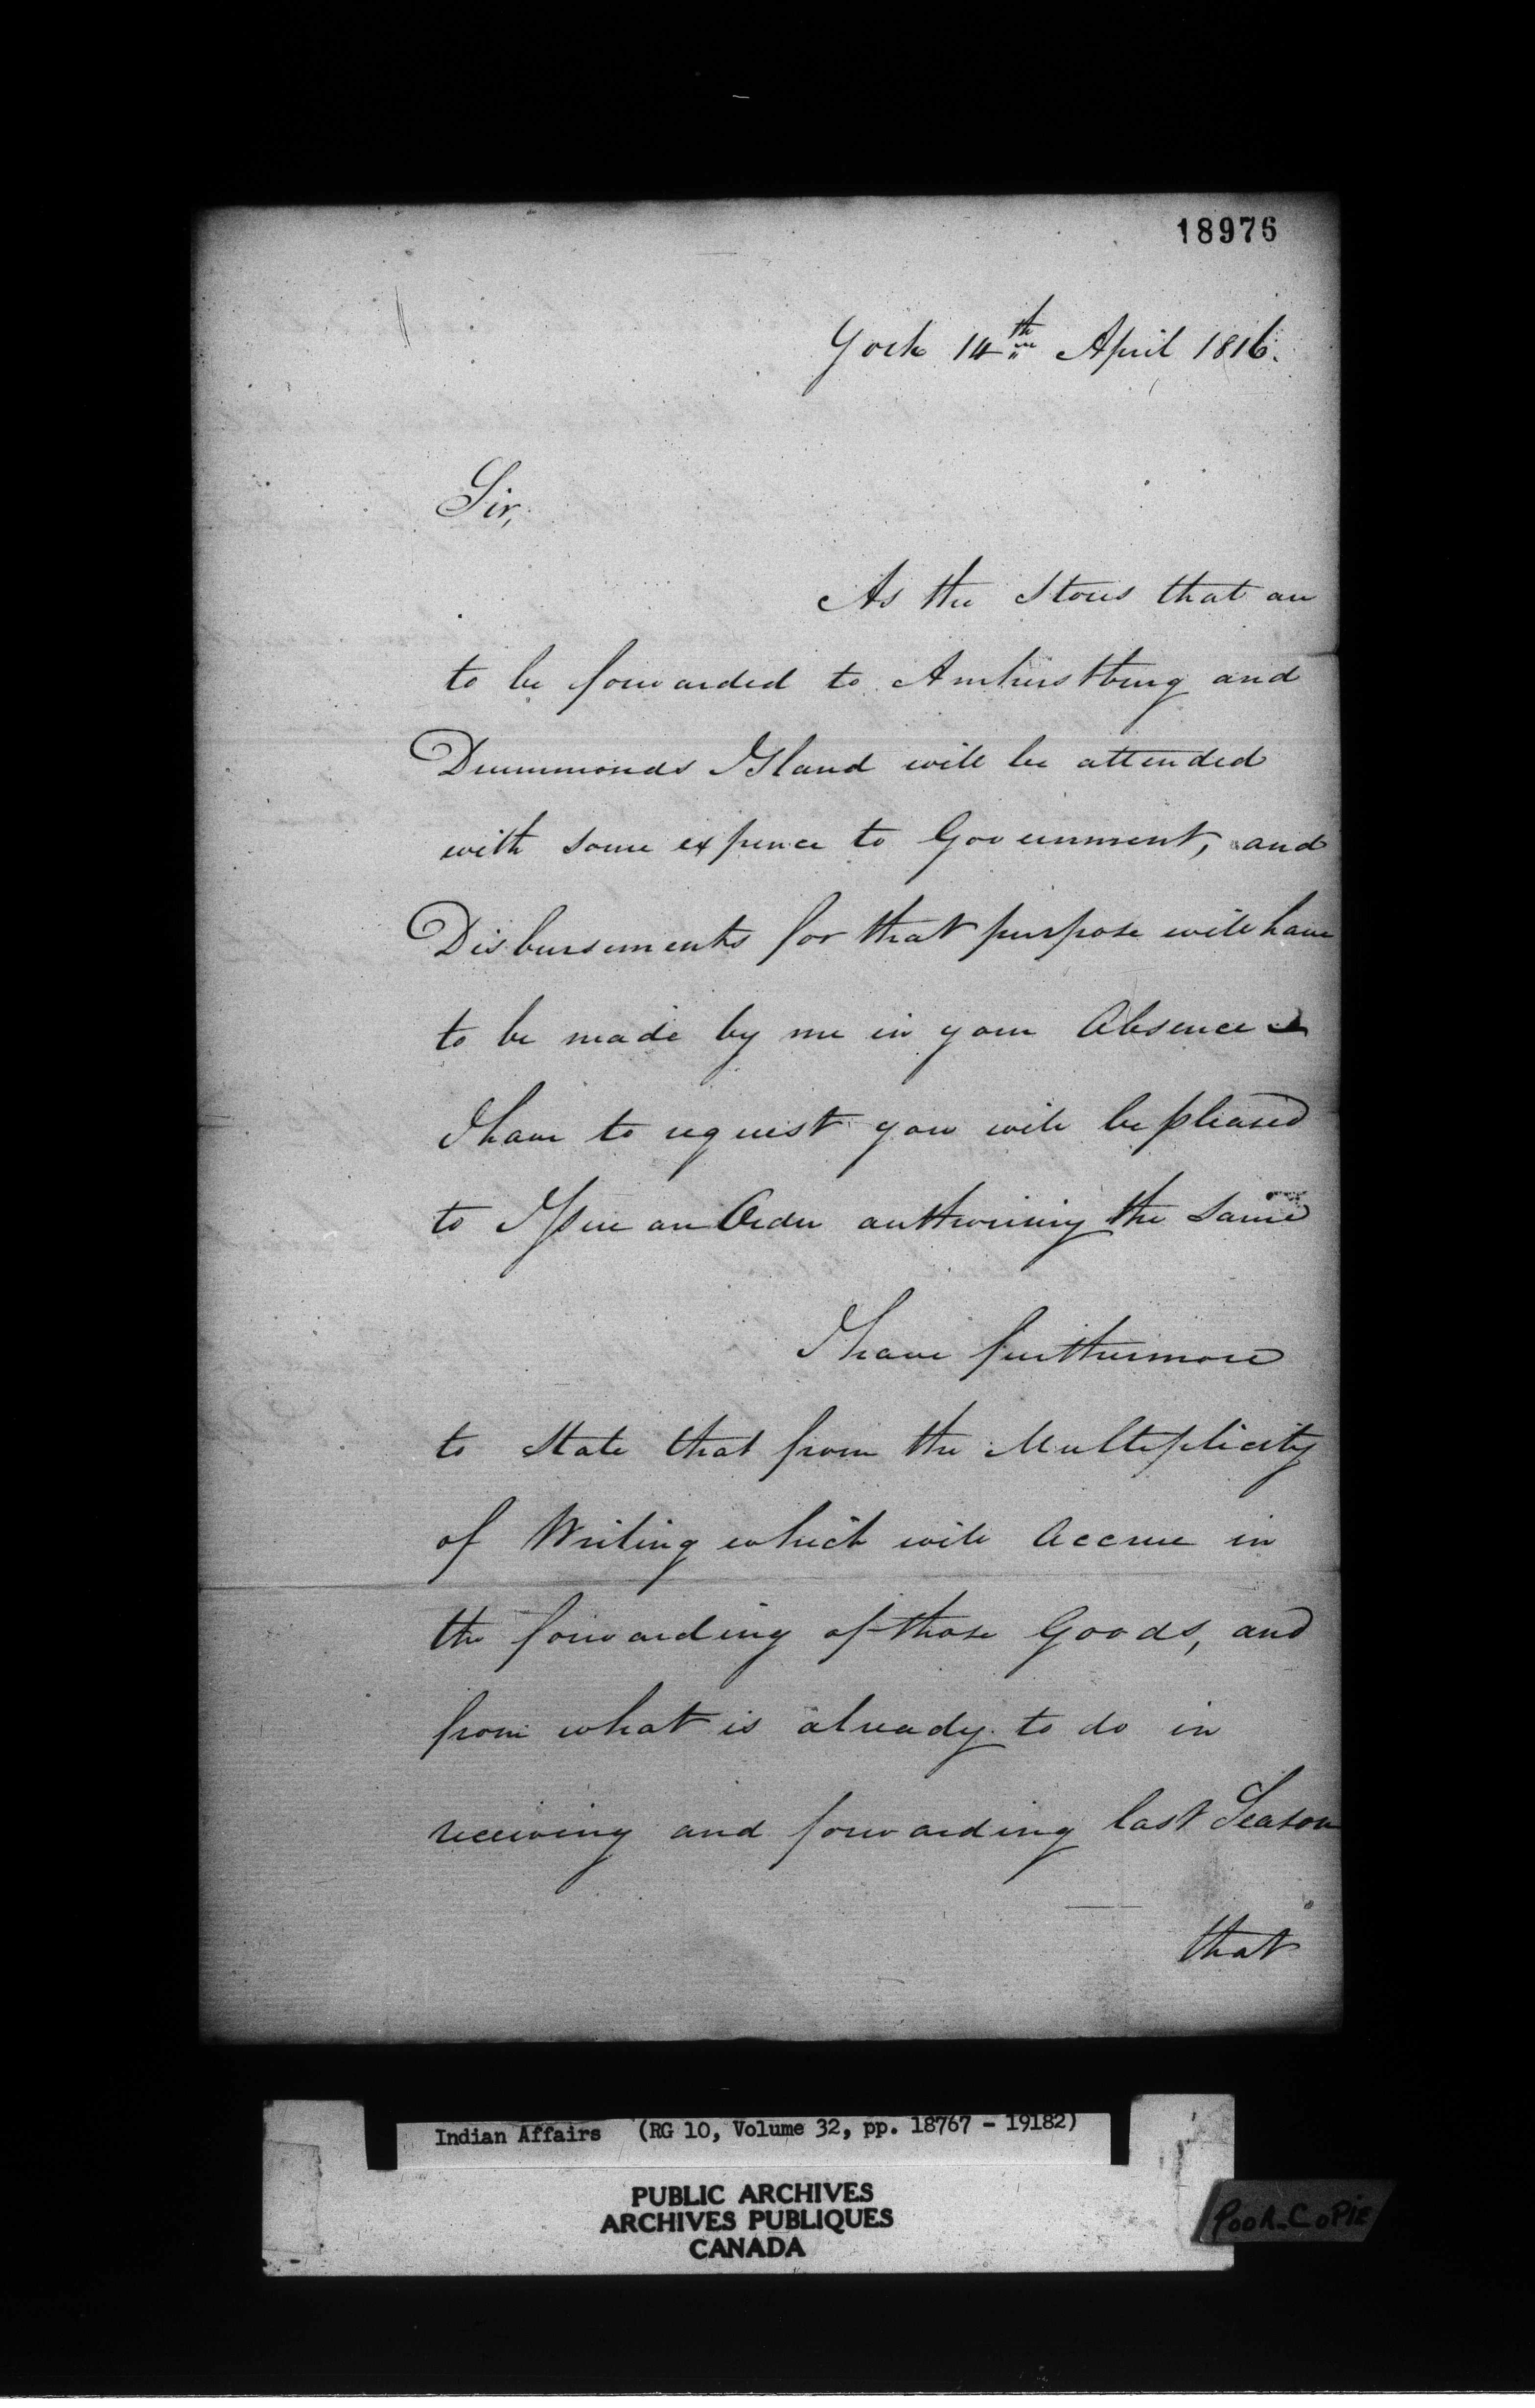 18976
York 14th April 1816.
Sir,
As the Stores that are
to be forwarded to Amherstburg and
Drummonds Island will be attended
with some expence to Government, and
Disbursements for that purpose will have
to be made by me in your Absence
I have to request you will be pleased
to Issue an Order authorising the Same
I have furthermore
to State that from the Multiplicity
of Writing which will Accrue in
the forwarding of those Goods, and
from what is already to do in
receiving and forwarding last Season
that
Indian Affairs (RG 10, Volume 32, pp. 18767 - 19182)
PUBLIC ARCHIVES
ARCHIVES PUBLIQUES
CANADA
POOR COPIE